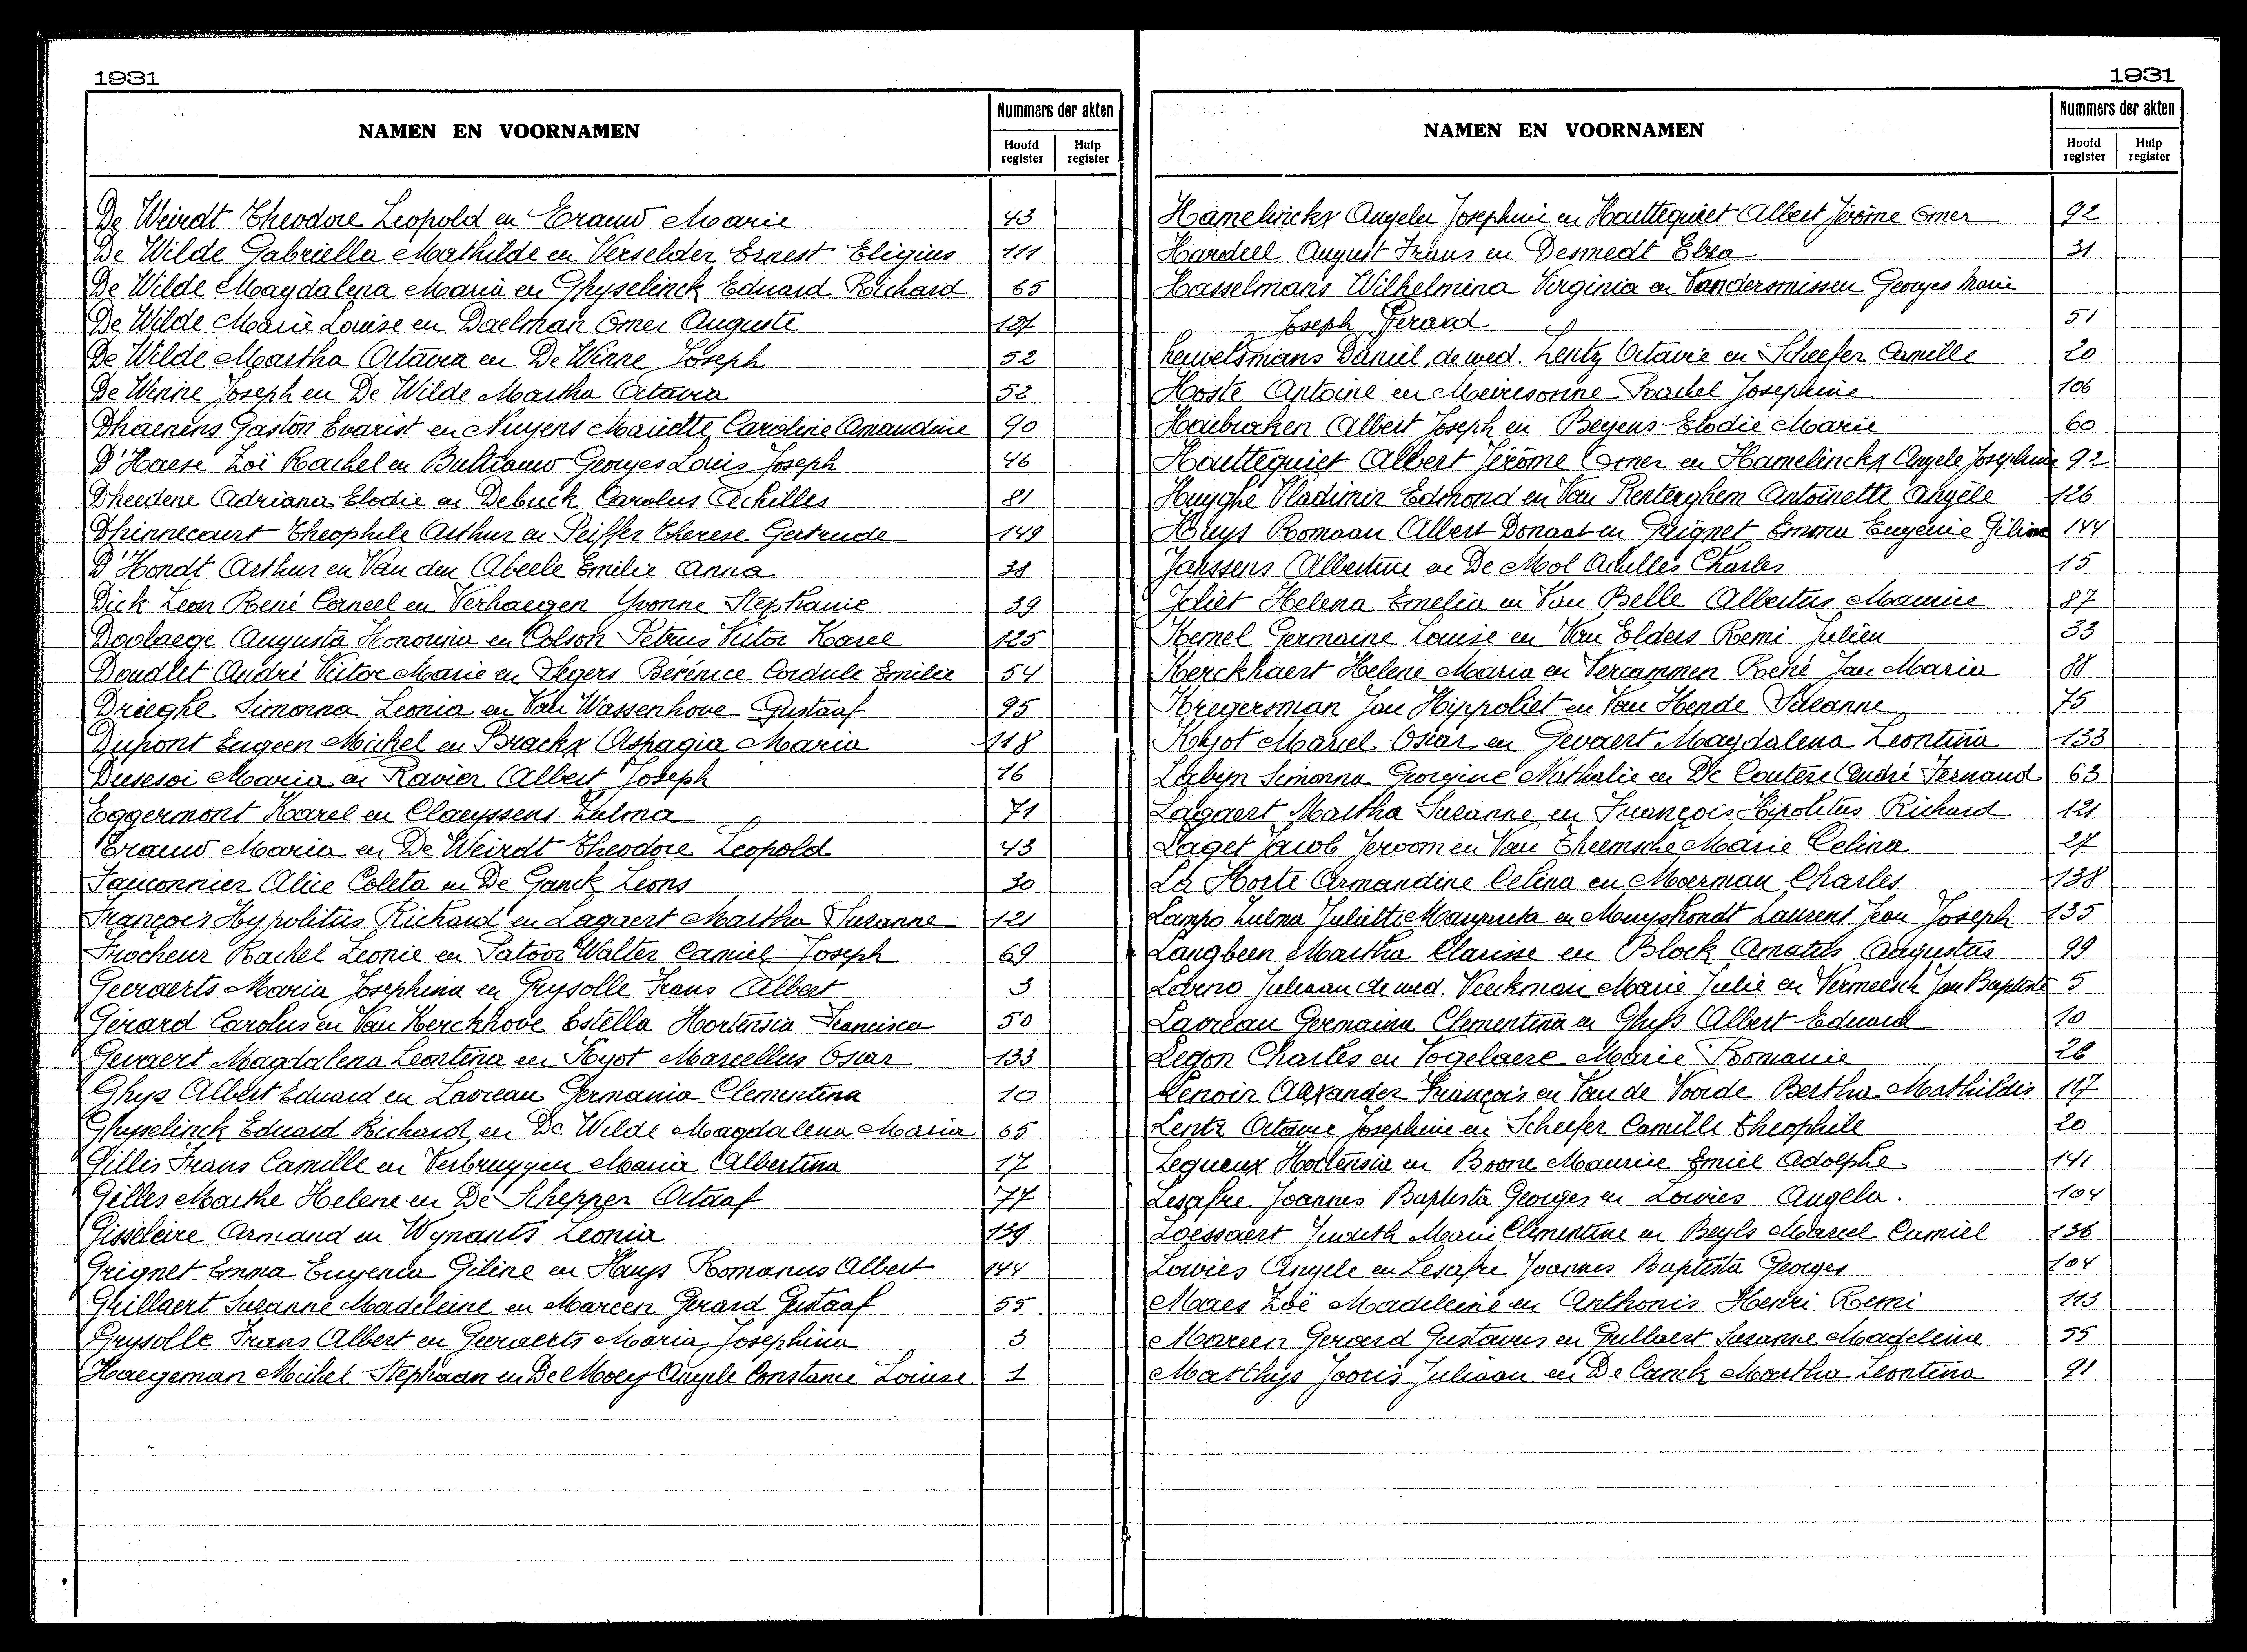 1931
NAMEN EN VOORNAMEN
Nummers der akten
Hoofd register
Hulp register
De Weirdt Theodore Leopold en Erauw Marie 43
De Wilde Gabriella Mathilde en Verselder Ernest Eligius 111
De Wilde Magdalena Maria en Ghyselinck Eduard Richard 65
De Wilde Marie Louise en Daelman Omer Auguste 127
De Wilde Martha Octavia en De Winne Joseph 52
De Winne Joseph en De Wilde Martha Octavia 52
Dhaenens Gaston Evarist en Nuyens Mariette Caroline Amandine 90
D'Haese Zoë Rachel en Bultiauw Georges Louis Joseph 46
Dheedene Adriana Elodie en Debuck Carolus Achilles 81
Dhinnecourt Theophile Arthur en Peiffer Therese Gertrude 149
D'Hondt Arthur en Van den Abeele Emilie Anna 38
Dick Leon René Corneel en Verhaegen Yvonne Stephanie 39
Doolaege Augusta Honorina en Colson Petrus Victor Karel 125
Doudlet André Victor Marie en Segers Berénice Cordule Emilie 54
Drieghe Simonna Leonia en Van Wassenhove Gustaaf 95
Dupont Eugeen Michel en Brackx Aspagia Maria 118
Dusesoi Maria en Ravier Albert Joseph 16
Eggermont Karel en Claeyssens Zulma 71
Erauw Maria en De Weirdt Theodore Leopold 43
Fauconnier Alice Coleta en De Ganck Leons 30
François Hypolitus Richard en Lagaert Martha Suzanne 121
Frocheur Rachel Leonie en Patoor Walter Camiel Joseph 69
Geeraerts Maria Josephina en Grysolle Frans Albert 3
Gerard Carolus en Van Kerckhove Estella Hortensia Francisca 50
Gevaert Magdalena Leontina en Koyot Marcellus Oscar 133
Ghys Albert Eduard en Lavreau Germania Clementina 10
Ghyselinck Eduard Richard en De Wilde Magdalena Maria 65
Gillis Frans Camille en Verbruggen Maria Albertina 17
Gilles Marthe Helene en De Schepper Octaaf 77
Gisseleire Armand en Wynants Leonia 139
Grignet Emma Eugenia Giline en Huys Romanus Albert 144
Grillaert Suzanne Madeleine en Mareen Gerard Gustaaf 55
Grysolle Frans Albert en Geeraerts Maria Josephina 3
Haegeman Michel Stephaan en De Moey Angele Constance Louise 1
1931
NAMEN EN VOORNAMEN
Nummers der akten
Hoofd register
Hulp register
Hamelinckx Angela Josephine en Hauttequiet Albert Jérôme Omer 92
Hardeel August Frans en Desmedt Elza 31
Hasselmans Wilhelmina Virginia en Vandersmissen Georges Marie
Joseph Gerard 51
Heuvelsmans Daniël, de wed. Lentz Octavie en Scheefer Camille 20
Hoste Antoine en Meiresonne Rachel Josephine 106
Houbraken Albert Joseph en Beyens Elodie Marie 60
Hauttequiet Albert Jérôme Omer en Hamelinckx Angele Josephine 92
Huyghe Vladimir Edmond en Van Renterghem Antoinette Angèle 126
Huys Romaan Albert Donaat en Grignet Emma Eugenie Giline 144
Janssens Albertine en De Mol Achilles Charles 15
Joliet Helena Emelia en Van Belle Albertus Maurice 87
Kemel Germaine Louise en Van Elders Remi Julien 33
Kerckhaert Helene Maria en Vercammen René Jan Maria 88
Kregersman Jan Hippoliet en Van Hende Suzanne 75
Koyot Marcel Oscar en Gevaert Magdalena Leontina 133
Labyn Simonna Georgine Nathalie en De Coutere André Fernand 63
Lagaert Martha Suzanne en François Hipolitus Richard 121
Laget Jacob Jeroom en Van Theemsche Marie Celina 27
La Horte Armandine Celina en Moerman Charles 138
Lampo Zulma Juliette Margareta en Muyshondt Laurent Jean Joseph 135
Langbeen Martha Clarisse en Block Amatus Augustus 99
Loberno Juliaan de wed. Veeckman Marie Julie en Vermeesch Jan Baptiste 5
Lavreau Germaine Clementina en Ghys Albert Eduard 10
Legon Charles en Vogelaere Marie Romanie 26
Lenoir Alexander François en Van de Voorde Bertha Mathildis 117
Lentz Octavie Josephine en Scheefer Camille Theophile 20
Lequeux Hortensia en Boone Maurice Emiel Adolphe 141
Lesafre Joannes Baptista Georges en Lowies Angela. 104
Loessaert Judith Marie Clementine en Beyls Marcel Camiel 136
Lowies Angele en Lesafre Joannes Baptista Georges 104
Maes Zoë Madeleine en Anthonis Henri Remi 113
Mareen Gerard Gustavus en Grillaert Suzanne Madeleine 55
Matthys Jooris Juliaan en De Canck Martha Leontina 91